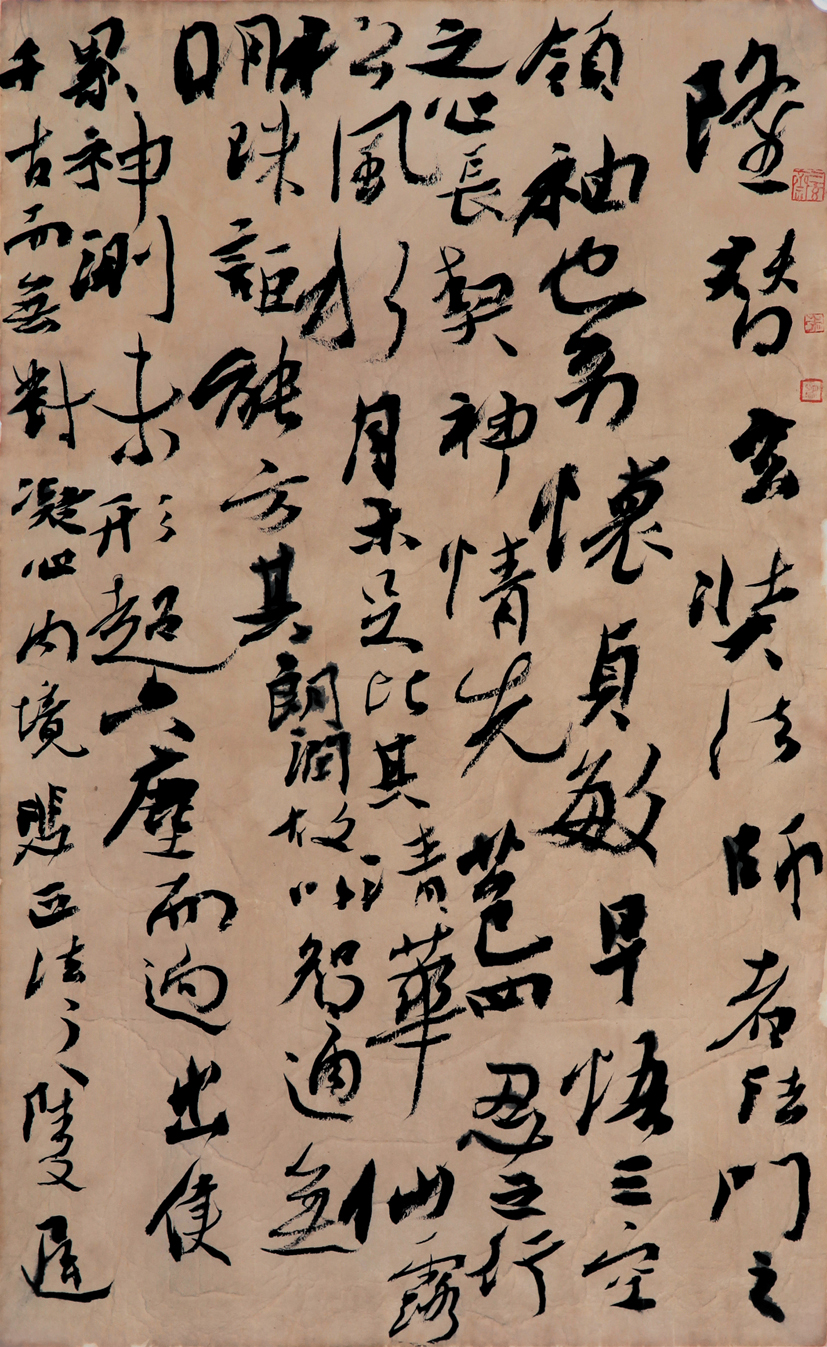 隆替玄奘法師者法門之
領袖也幼懷貞敏早悟三空
之心長契神情先苞四忍之行
松風水月未足比其清華仙露
明珠詎能方其朗潤故以智通無
累神測未形超六塵而迥出隻
千古而無對凝心內境悲正法之陵遲